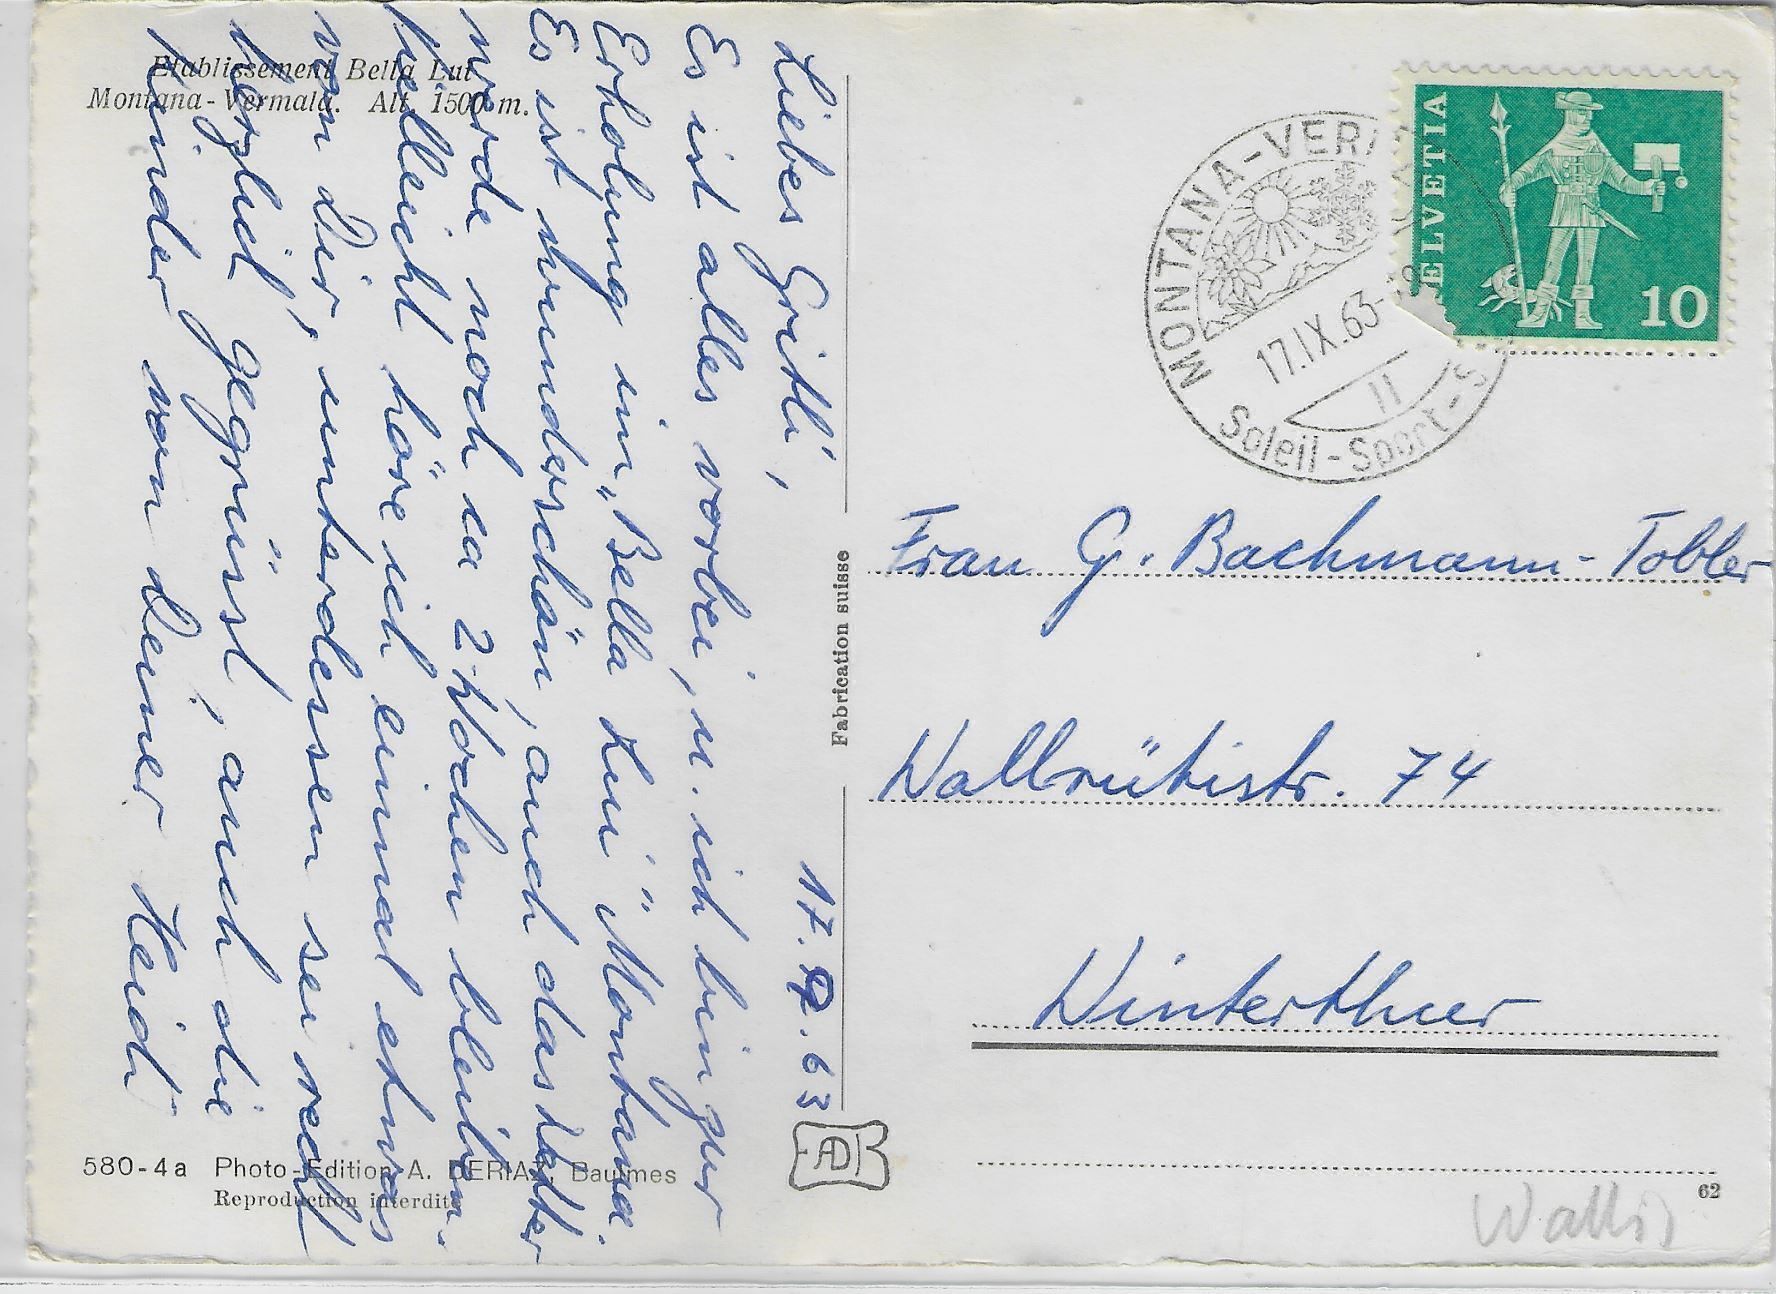 Etablissement Bella Lui
Montana-Vermala. Alt. 1500 m.
17.9.63
Liebes Gritli,
Es ist alles vorbei, u. ich bin zur
Erholung im „Bella Lui" Montana.
Es ist wunderschön, auch das Wetter
werde noch ca 2 Wochen bleiben.
Vielleicht höre ich einmal etwas
von Dir, unterdessen sei recht
herzlich gegrüsst, auch die
Kinder von Deiner Heidi
580-4a Photo-Edition A. DERIAZ, Baulmes
Reproduction interdite
Fabrication suisse
ADB
MONTANA-VER
17.IX.63-
11
Soleil-Sport-S
HELVETIA
10
Frau G. Bachmann-Tobler
Wallrütistr. 74
Winterthur
62
Wallis